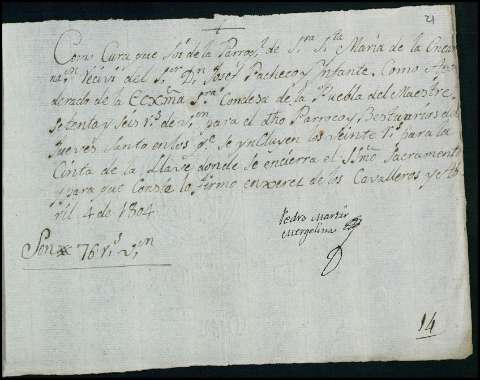 21
Como Cura que soi de la Parroq.l de S.ra S.ta Maria de la Encar
na.on Recivi del S.or D.n Josef Pacheco y Infante, como Apo
derado de la Ecxma S.ra Condesa de la Puebla del Maestre,
Setenta y seis r.s de v.on para el dho Parroco y Bestuarios el dia
Jueves Santo en los q.e se yncluyen los veinte r.s para la
Cinta de la llave donde se encierra el SSmo Sacramento
y para que Conste lo firmo en xerez de los Cavalleros y Ab
ril 4 de 1804
Pedro Martir
Mergelina
Son 76 r.s v.on
14